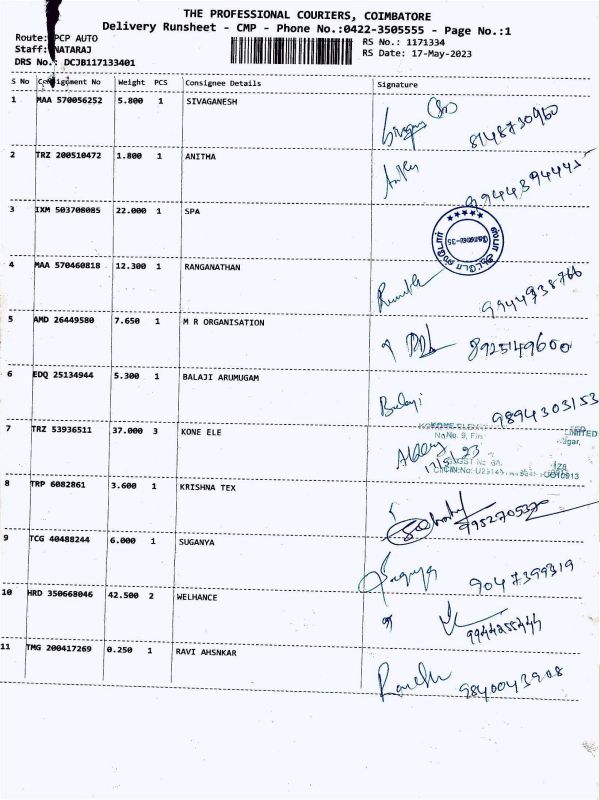 THE PROFESSIONAL COURIERS, COIMBATORE
Delivery Runsheet - CMP - Phone No.:0422-3505555 - Page No.:1
Route: PCP AUTO
RS No.: 1171334
Staff: NATARAJ
RS Date: 17-May-2023
DRS No.: DCJB117133401
S No Consignment No Weight PCS Consignee Details Signature
1 MAA 570056252 5.800 1 SIVAGANESH
8148730960
2 TRZ 200510472 1.800 1 ANITHA
3 IXM 503708085 22.000 1 SPA
4 MAA 570460818 12.300 1 RANGANATHAN
9944938766
5 AMD 26449580 7.650 1 M R ORGANISATION
8925149600
6 EDQ 25134944 5.300 1 BALAJI ARUMUGAM
Balaji 9894303153
7 TRZ 53936511 37.000 3 KONE ELE
LIMITED
No. 9,
17/5/23
8 TRP 6082861 3.600 1 KRISHNA TEX
9 TCG 40488244 6.000 1 SUGANYA
Suganya 9047399319
10 HRD 350668046 42.500 2 WELHANCE
9944255444
11 TMG 200417269 0.250 1 RAVI AHSNKAR
9840043908